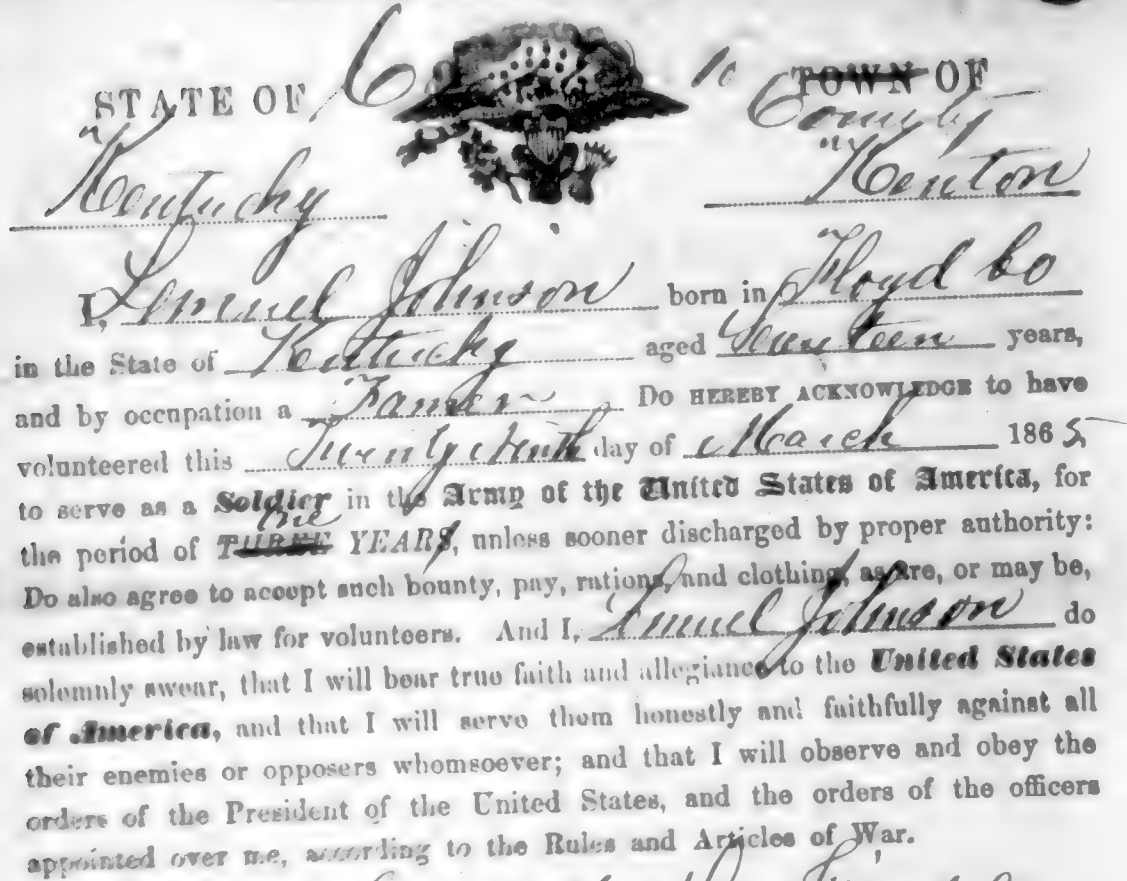 STATE OF 6 TOWN OF
County
Kentucky Kenton
I, Lemuel Johnson born in Floyd Co
in the State of Kentucky aged Seventeen years,
and by occupation a Farmer Do HEREBY ACKNOWLEDGE to have
volunteered this Twenty day of March 1865
to serve as a Soldier in the Army of the United States of America, for
one
the period of THREE YEARS, unless sooner discharged by proper authority:
Do also agree to accept such bounty, pay, rations, and clothing, as are, or may be,
established by law for volunteers. And I, Lemuel Johnson do
solemnly swear, that I will bear true faith and allegiance to the United States
of America, and that I will serve them honestly and faithfully against all
their enemies or opposers whomsoever; and that I will observe and obey the
orders of the President of the United States, and the orders of the officers
appointed over me, according to the Rules and Articles of War.